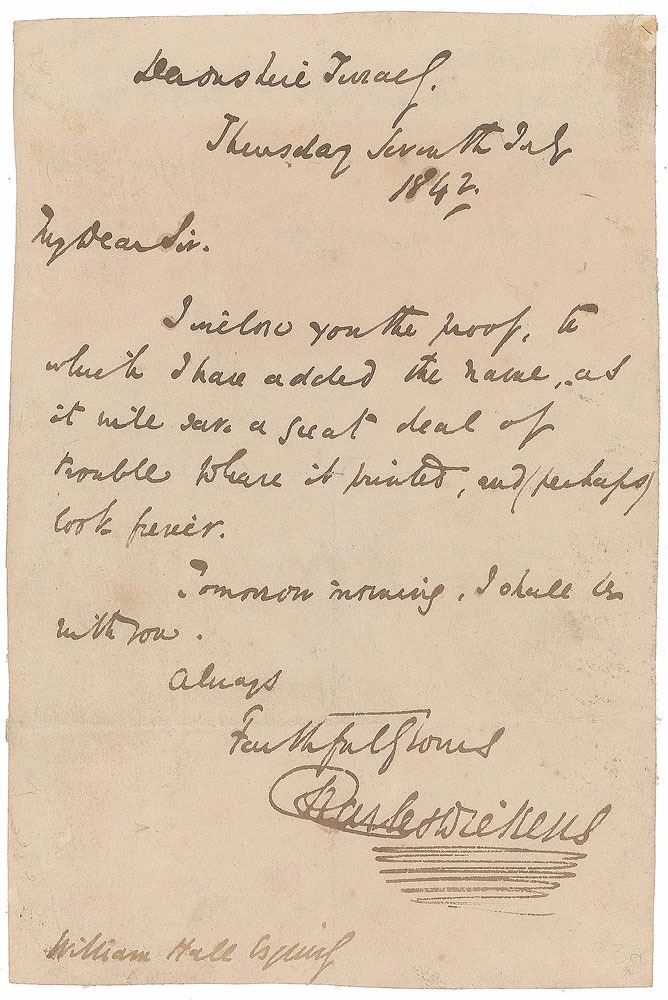 Devonshire Terrace.
Thursday Seventh July
1842.
My Dear Sir.
I inclose you the proof, to
which I have added the name, as
it will save a great deal of
trouble to have it printed, and (perhaps)
look
Tomorrow morning, I shall be
with you.
Always
Faithfully Yours
Charles Dickens
William Hall Esquire